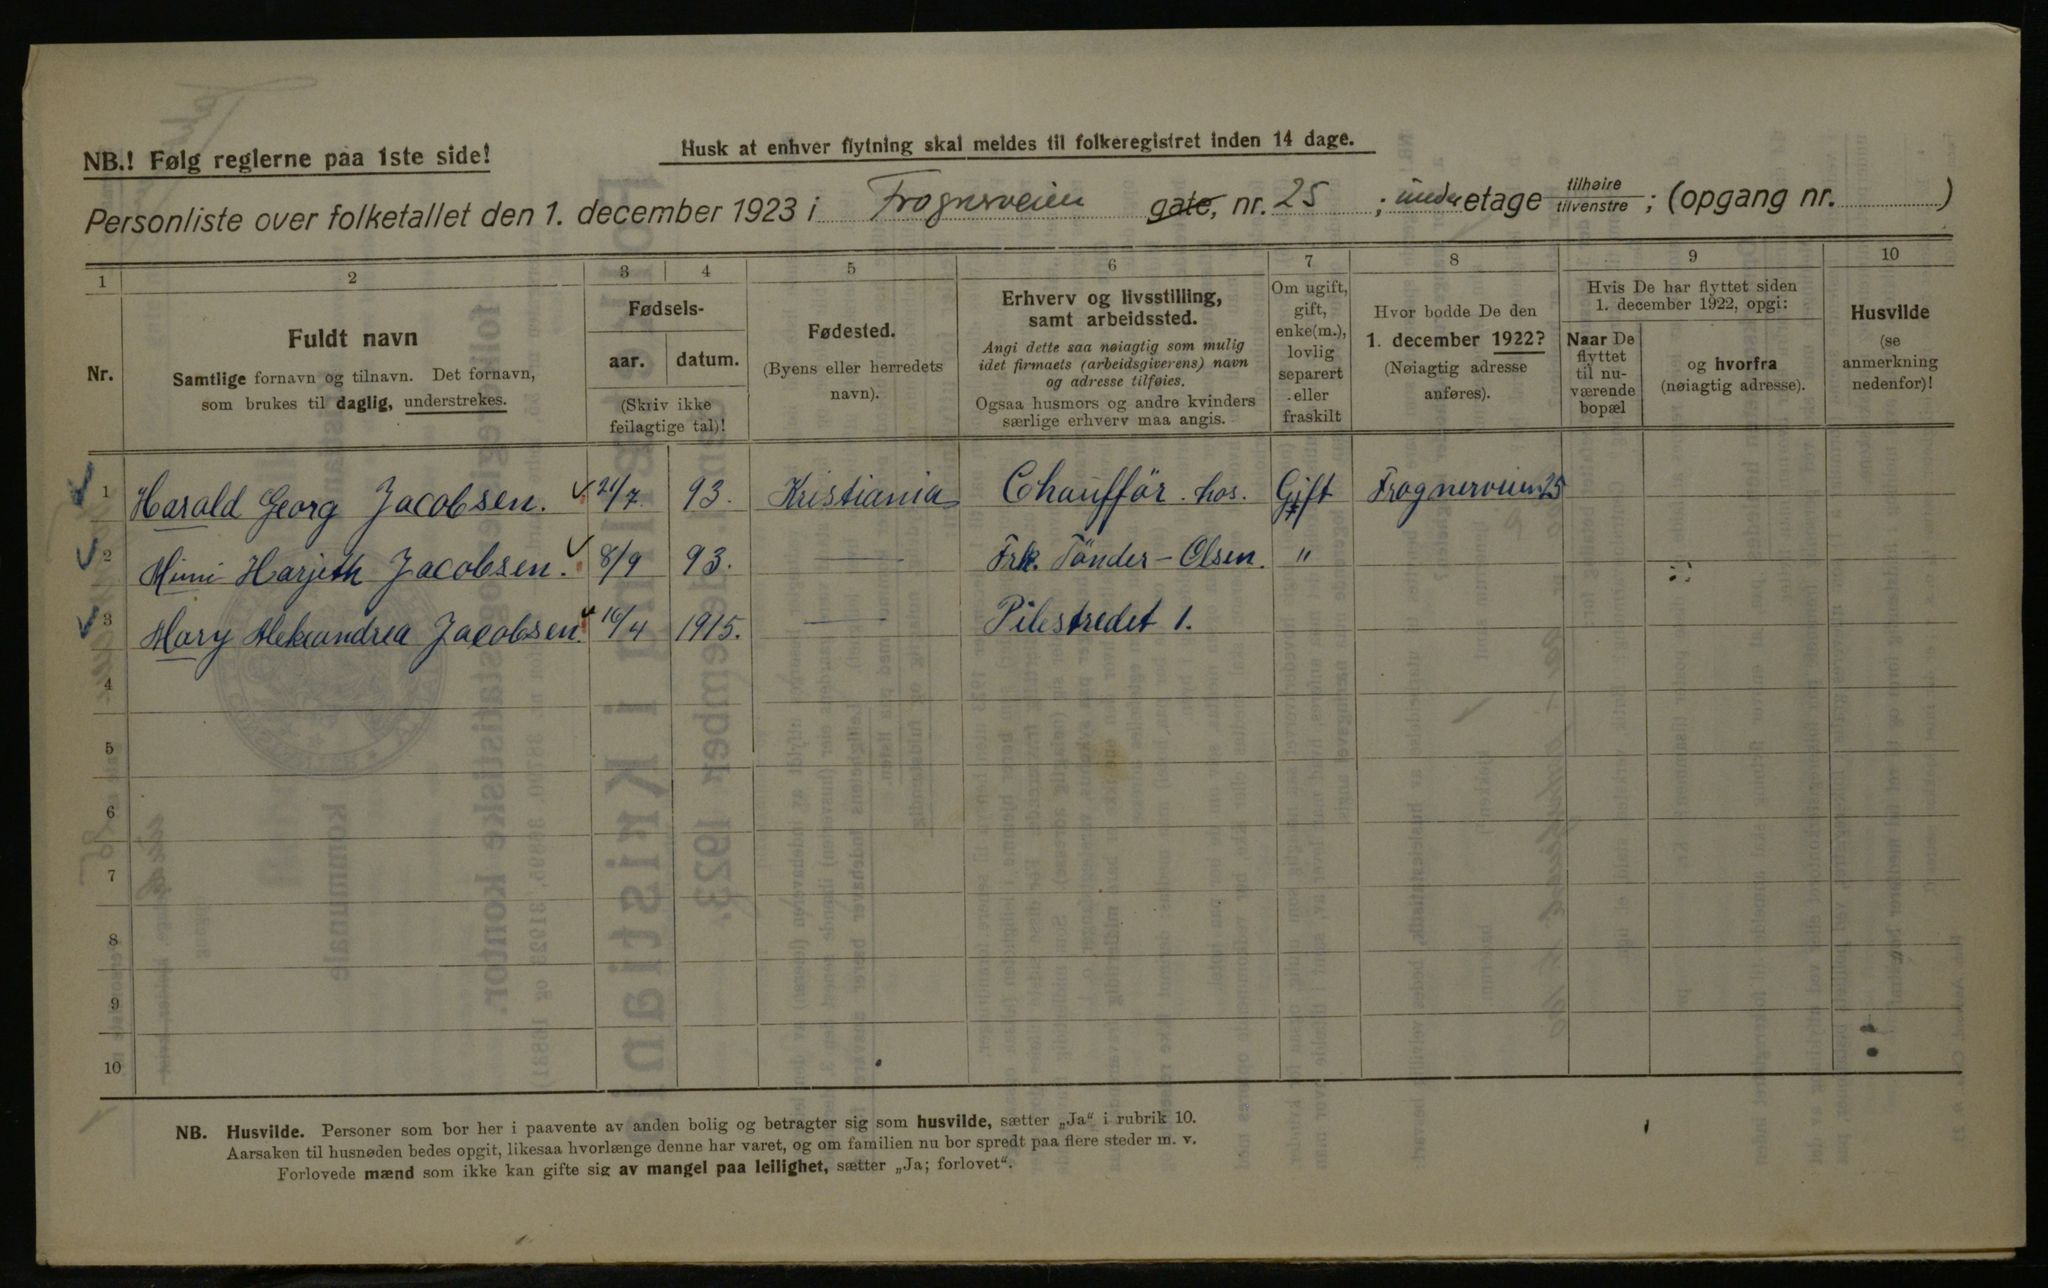 NB.! Følg reglerne paa 1ste side!
Husk at enhver flytning skal meldes til folkeregistret inden 14 dage.
Personliste over folketallet den 1. december 1923 i Frognerveien gate, nr. 25 ; under etage tilhøire tilvenstre ; (opgang nr. )
1 2 3 4 5 6 7 8 9 10
Nr.
Fuldt navn
Samtlige fornavn og tilnavn. Det fornavn,
som brukes til daglig, understrekes.
Fødsels-
aar. datum.
(Skriv ikke
feilagtige tal)!
Fødested.
(Byens eller herredets
navn).
Erhverv og livsstilling,
samt arbeidssted.
Angi dette saa nøiagtig som mulig
idet firmaets (arbeidsgiverens) navn
og adresse tilføies.
Ogsaa husmors og andre kvinders
særlige erhverv maa angis.
Om ugift,
gift,
enke(m.),
lovlig
separert
eller
fraskilt
Hvor bodde De den
1. december 1922?
(Nøiagtig adresse
anføres).
Hvis De har flyttet siden
1. december 1922, opgi:
Naar De
flyttet
til nu-
værende
bopæl
og hvorfra
(nøiagtig adresse).
Husvilde
(se
anmerkning
nedenfor)!
1 Harald Georg Jacobsen. 21/7 93. Kristiania Chaufför. hos. Gift Frognerveien 25
2 Mimi Harjeth Jacobsen. 8/9 93. — Frk. Tönder-Olsen. "
3 Mary Aleksandrea Jacobsen. 16/4 1915. — Pilestredet 1.
4
5
6
7
8
9
10
NB. Husvilde. Personer som bor her i paavente av anden bolig og betragter sig som husvilde, sætter „Ja“ i rubrik 10.
Aarsaken til husnøden bedes opgit, likesaa hvorlænge denne har varet, og om familien nu bor spredt paa flere steder m. v.
Forlovede mænd som ikke kan gifte sig av mangel paa leilighet, sætter „Ja; forlovet“.